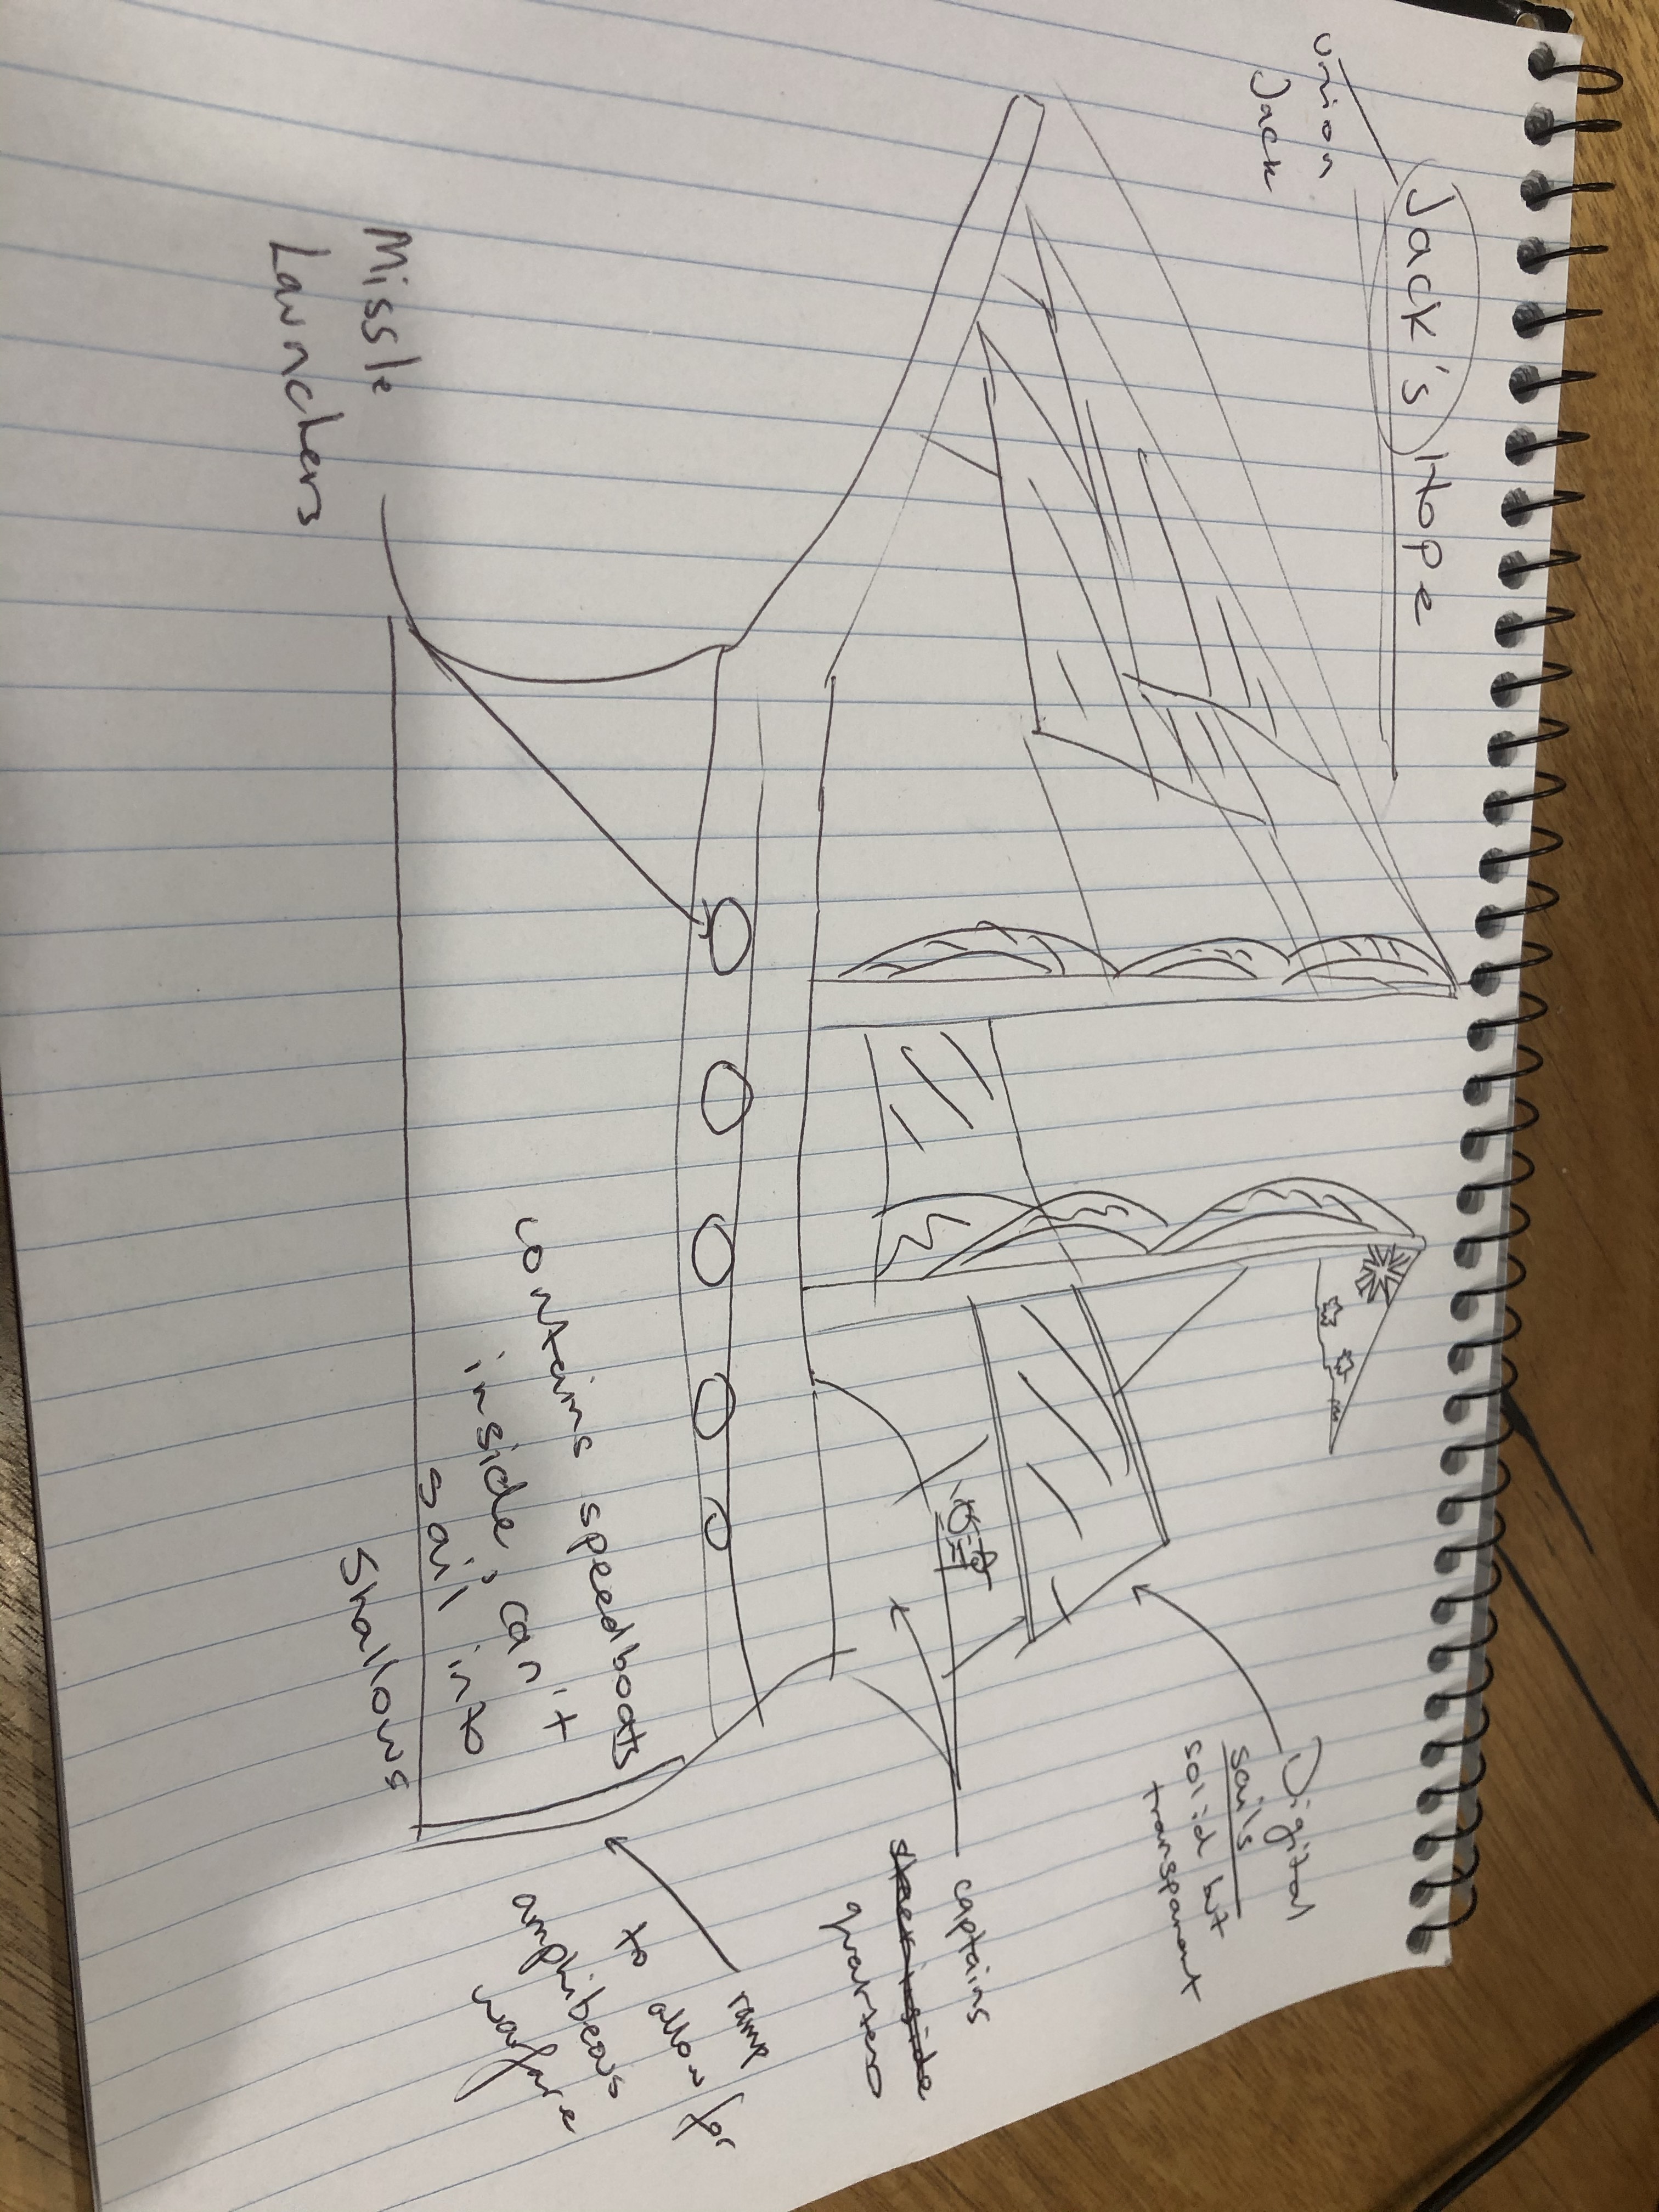 Jack's Hope
Union
Jack
Digital
sails
solid but
transparant
captains
quarters
ramp
to allow for
amphibeous
warfare
contains speedboats
inside, can't
sail into
Shallows
Missle
Launchers